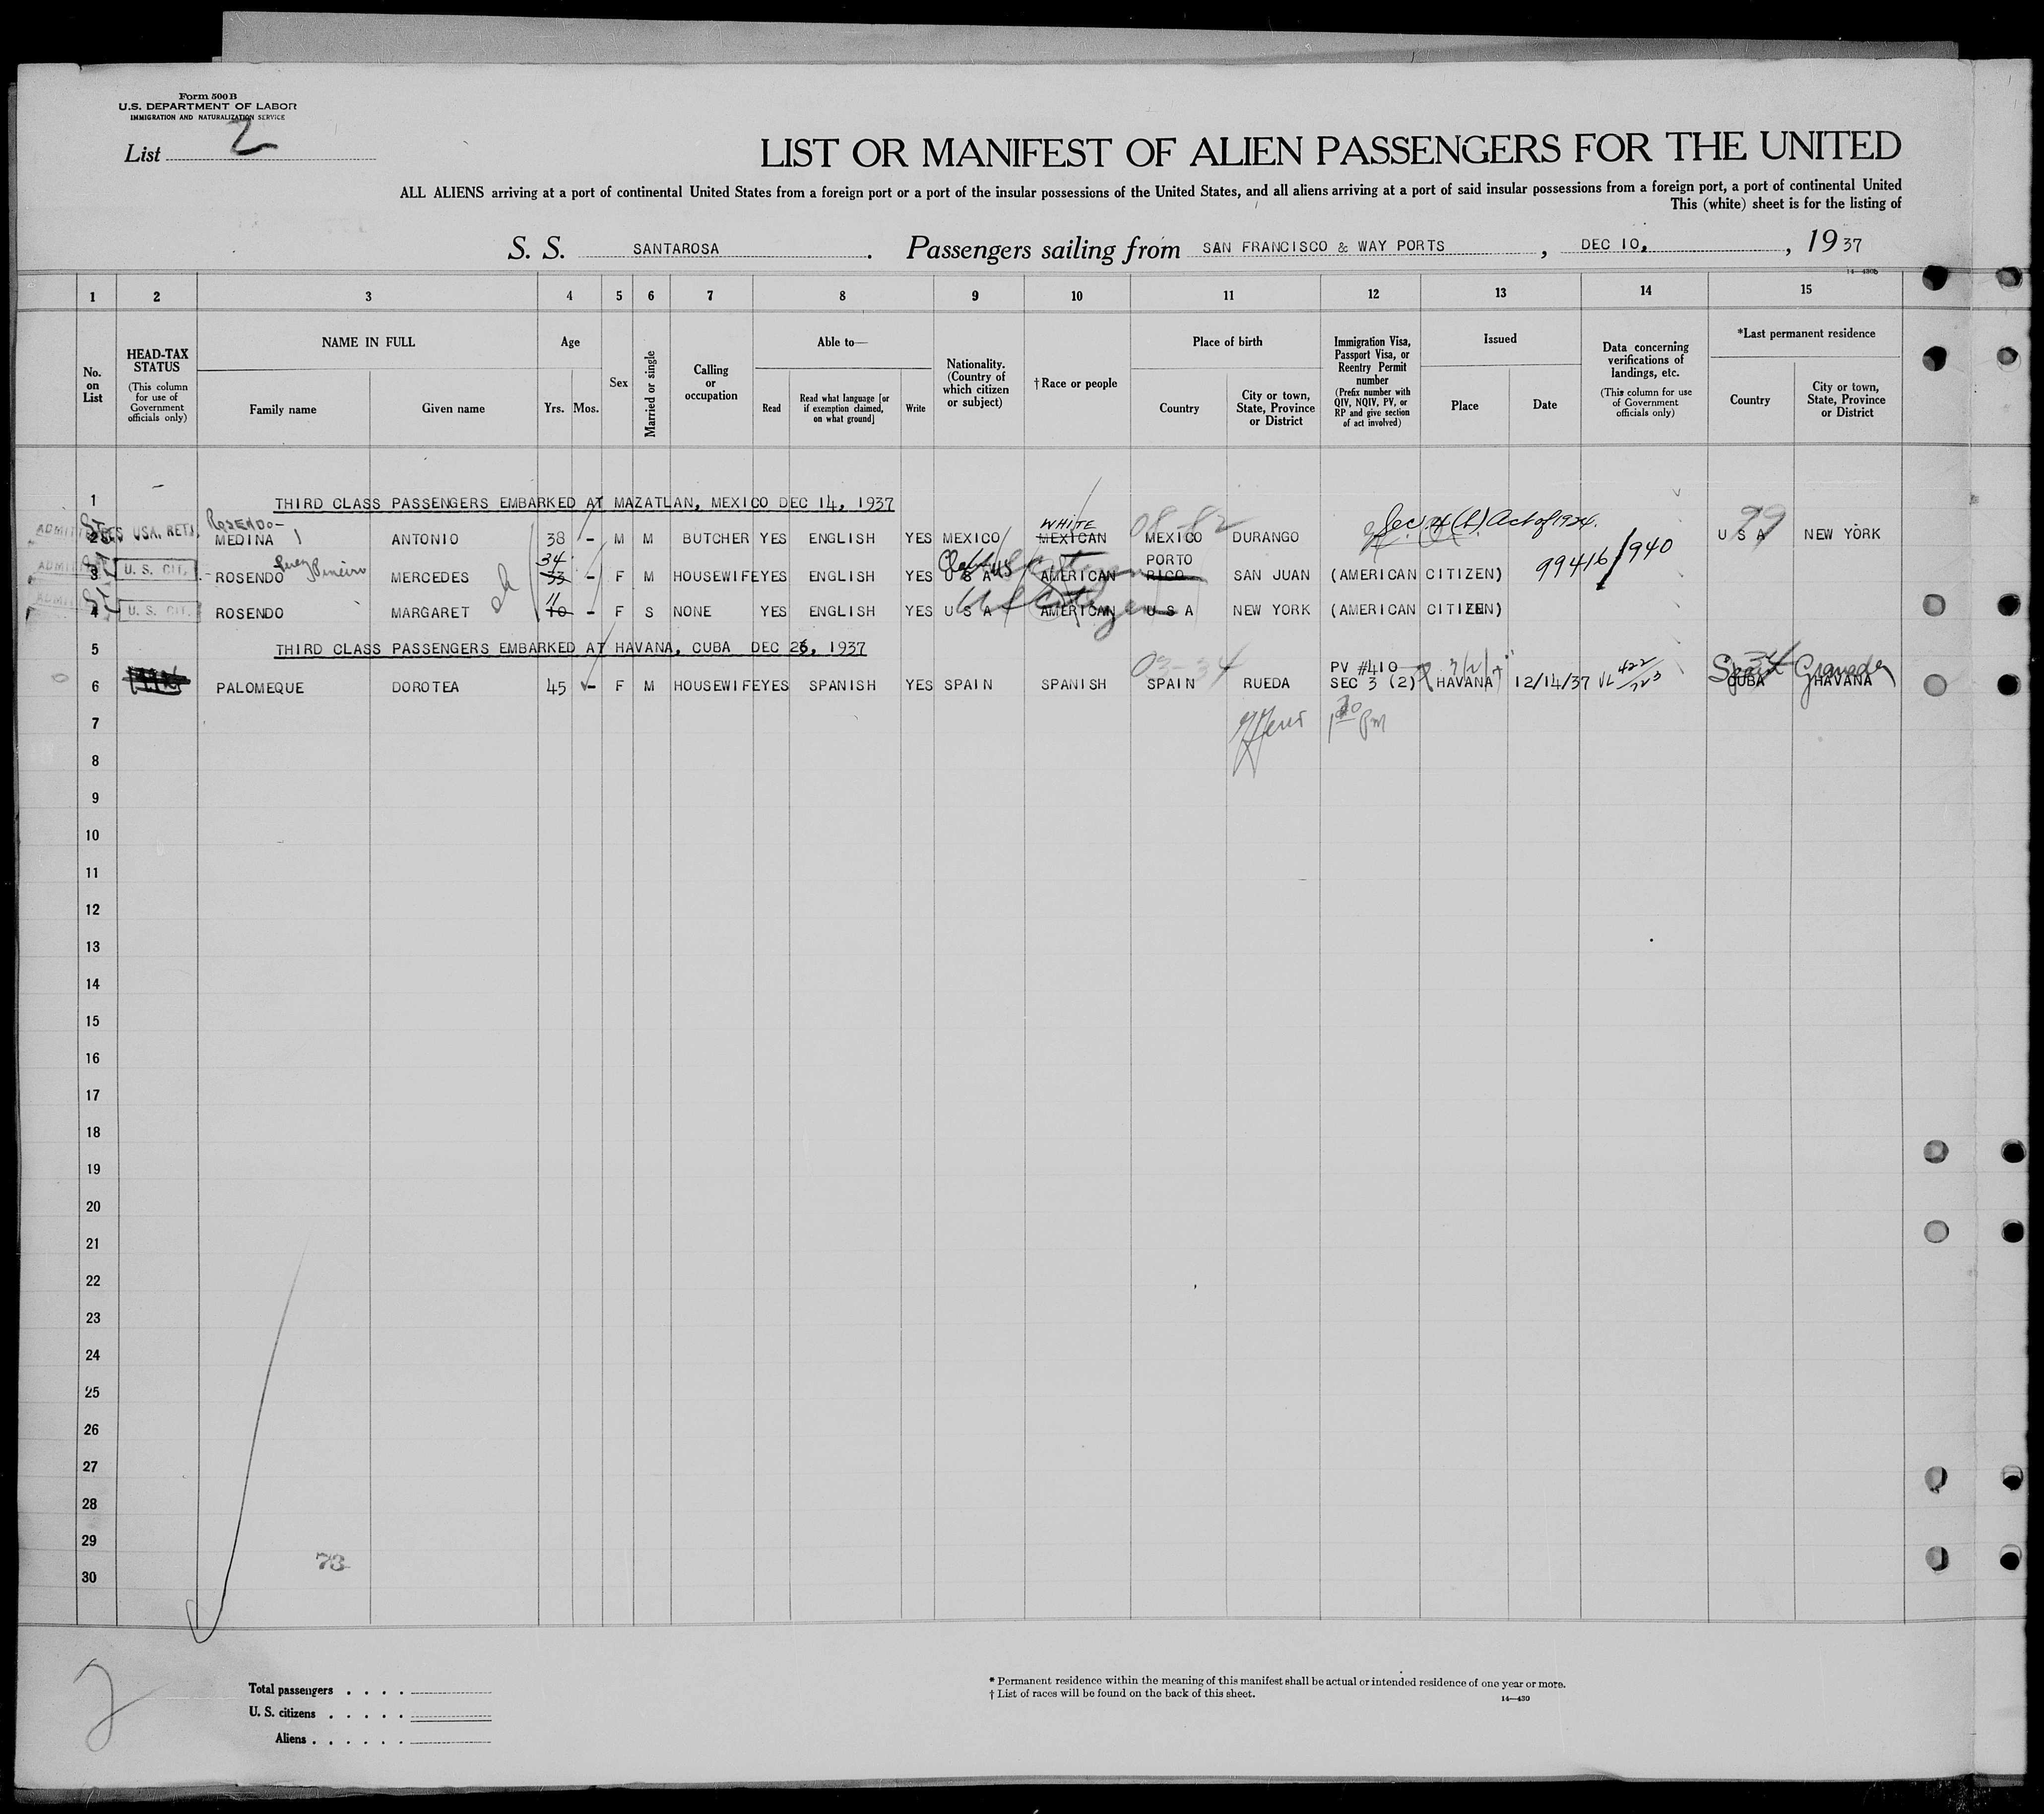 Form 500 B
U.S. DEPARTMENT OF LABOR
IMMIGRATION AND NATURALIZATION SERVICE
List 2
LIST OR MANIFEST OF ALIEN PASSENGERS FOR THE UNITED
ALL ALIENS arriving at a port of continental United States from a foreign port or a port of the insular possessions of the United States, and all aliens arriving at a port of said insular possessions from a foreign port, a port of continental United
This (white) sheet is for the listing of
S. S. SANTAROSA. Passengers sailing from SAN FRANCISCO & WAY PORTS, DEC 10, , 1937
14—430b
1 2 3 4 5 6 7 8 9 10 11 12 13 14 15
No. on List
HEAD-TAX STATUS
(This column for use of Government officials only)
NAME IN FULL
Family name Given name
Age
Yrs. Mos.
Sex
Married or single
Calling or occupation
Able to—
Read
Read what language [or if exemption claimed, on what ground]
Write
Nationality. (Country of which citizen or subject)
† Race or people
Place of birth
Country
City or town, State, Province or District
Immigration Visa, Passport Visa, or Reentry Permit number
(Prefix number with QIV, NQIV, PV, or RP and give section of act involved)
Issued
Place Date
Data concerning verifications of landings, etc.
(This column for use of Government officials only)
*Last permanent residence
Country
City or town, State, Province or District
1 THIRD CLASS PASSENGERS EMBARKED AT MAZATLAN, MEXICO DEC 14, 1937
ROSENDO- WHITE 08-82 Sec. 4 (b) Act of 1924. 99
2 USA. RET. MEDINA ANTONIO 38 - M M BUTCHER YES ENGLISH YES MEXICO MEXICAN MEXICO DURANGO U S A NEW YORK
34 PORTO 99416/940
3 U. S. CIT. ROSENDO MERCEDES 33 - F M HOUSEWIFE YES ENGLISH YES U S A US Citizen AMERICAN RICO SAN JUAN (AMERICAN CITIZEN)
11
4 U. S. CIT. ROSENDO MARGARET 10 - F S NONE YES ENGLISH YES U S A US Citizen AMERICAN U S A NEW YORK (AMERICAN CITIZEN)
5 THIRD CLASS PASSENGERS EMBARKED AT HAVANA, CUBA DEC 26, 1937
03-34 PV #410 Spain Granada
6 PALOMEQUE DOROTEA 45 - F M HOUSEWIFE YES SPANISH YES SPAIN SPANISH SPAIN RUEDA SEC 3 (2) HAVANA 12/14/37 VL 422/723 CUBA HAVANA
7
8
9
10
11
12
13
14
15
16
17
18
19
20
21
22
23
24
25
26
27
28
29
73
30
2
Total passengers . . . .
U. S. citizens . . . . .
Aliens . . . . . .
* Permanent residence within the meaning of this manifest shall be actual or intended residence of one year or more.
† List of races will be found on the back of this sheet.
14—430